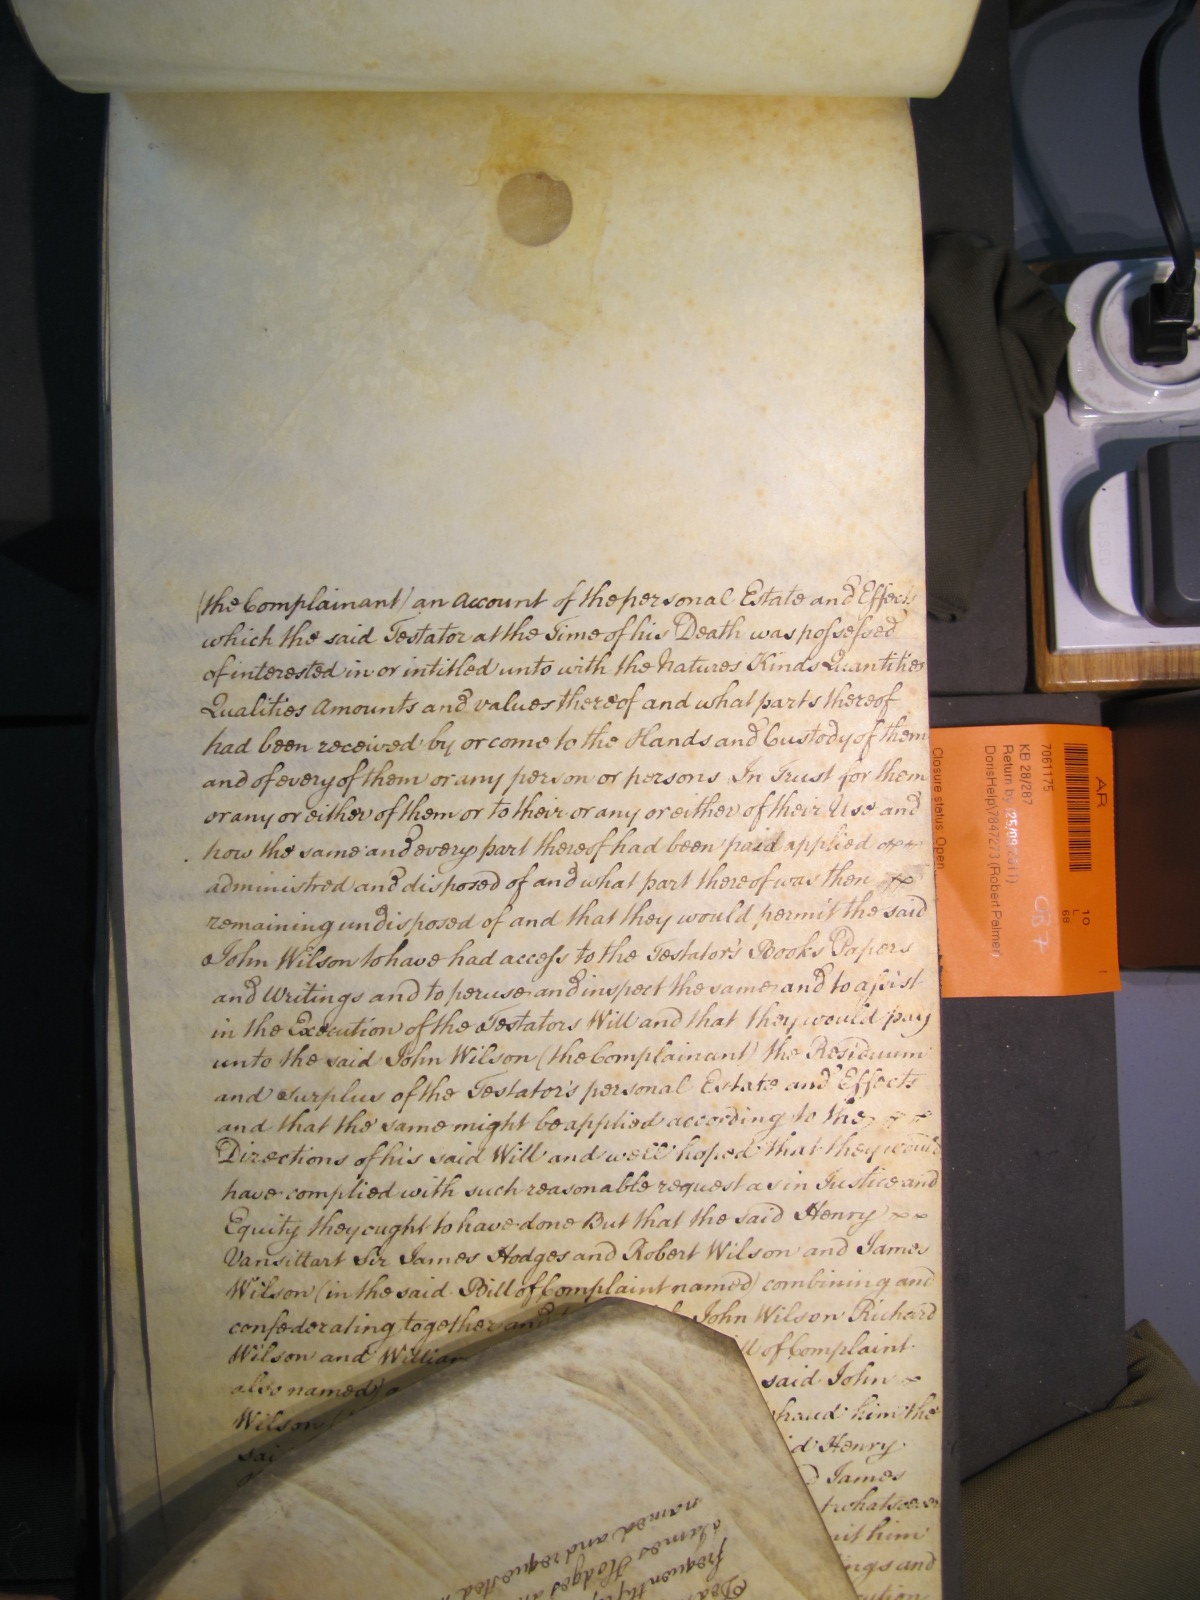 (the Complainant) an Account of the personal Estate and Effects
which the said Testator at the Time of his Death was possessed
of interested in or intitled unto with the Natures Kinds Quantities
Qualities Amounts and values thereof and what parts thereof
had been received by or come to the Hands and Custody of them
and of every of them or any person or persons In Trust for them
or any or either of them or to their or any or either of their Use and
how the same and every part thereof had been paid applied
administred and disposed of and what part thereof was then
remaining undisposed of and that they would permit the said
John Wilson to have had access to the Testator's Books Papers
and Writings and to peruse and inspect the same and to assist
in the Execution of the Testators Will and that they would pay
unto the said John Wilson (the Complainant) the Residuum
and Surplus of the Testator's personal Estate and Effects
and that the same might be applied according to the
Directions of his said Will and well hoped that they would
have complied with such reasonable request as in Justice and
Equity they ought to have done But that the said Henry
Vansittart Sir James Hodges and Robert Wilson and James
Wilson (in the said Bill of Complaint named) combining and
confederating together and John Wilson Richard
Wilson and William of Complaint
also named) said John
Wilson him the
sai Henry
James
whatsoever
him
and
named and requested
James Hodges an
frequently
AR
10
L
68
7061175
KB 28/287
Return by 25/09/2011)
DorisHelp\7847223 (Robert Palmer)
Closure status Open